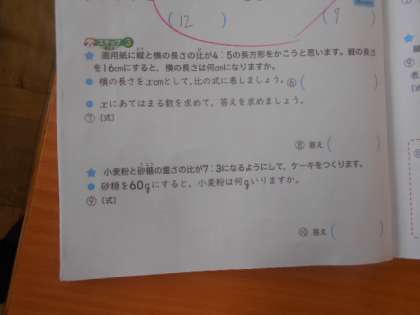 (12) (9)
ステップ3
★ 画用紙に縦と横の長さの比が4:5の長方形をかこうと思います。縦の長さ
を16cmにすると、横の長さは何cmになりますか。
● 横の長さをxcmとして、比の式に表しましょう。⑥( )
● xにあてはまる数を求めて、答えを求めましょう。
⑦ 〔式〕
⑧ 答え( )
★ 小麦粉と砂糖の重さの比が7:3になるようにして、ケーキをつくります。
● 砂糖を60gにすると、小麦粉は何gいりますか。
⑨ 〔式〕
⑩ 答え( )